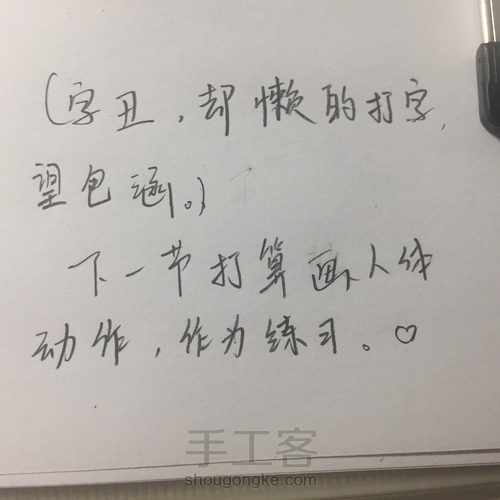 （字丑，却懒的打字，
望包涵。）
下一节打算画人体
动作，作为练习。♡
手工客
shougongke.com